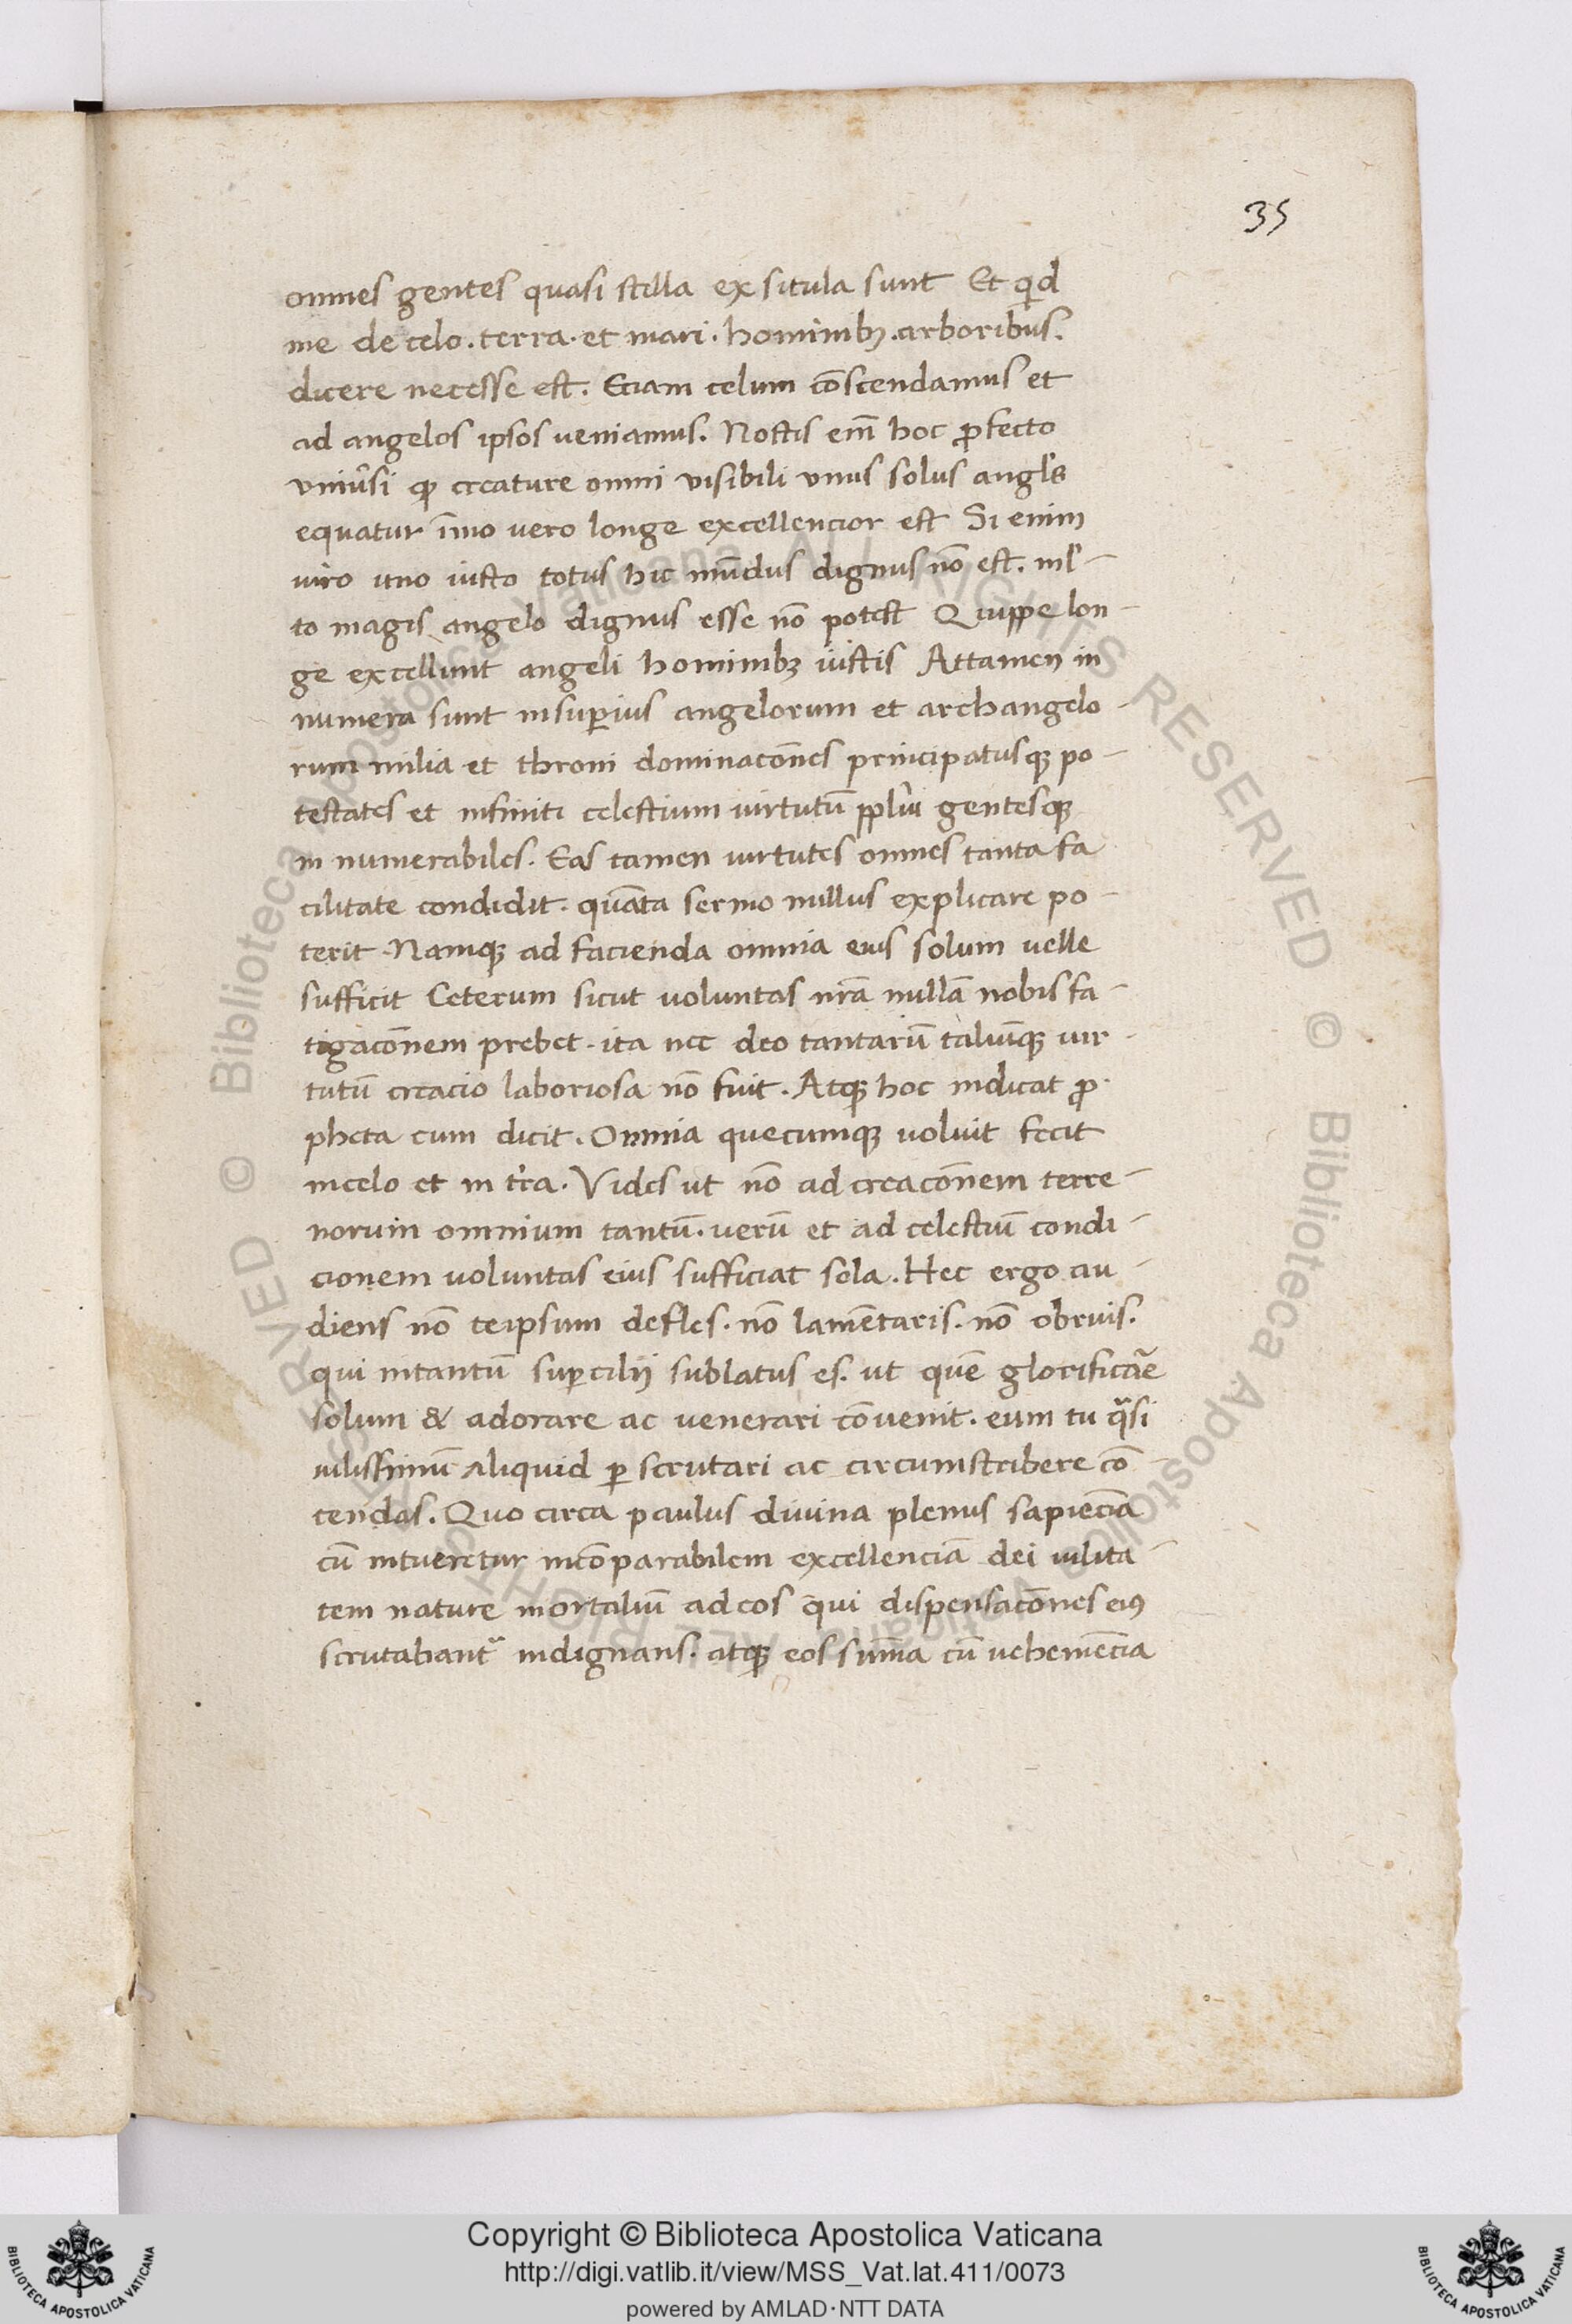 35
omnes gentes quasi stilla ex situla sunt Et qid
me de celo. terra. et mari. hominibꝫ. arboribus.
dicere necesse est. Eciam celum cōscendamus et
ad angelos ipsos veniamus. Nostis em̄ hoc ꝓfecto
vniu̓si ꝙ creature omni visibili vnus solus angl̓s
equatur ī̄mo vero longe excellencior est Si enim
uiro uno iusto totus hic mūdus dignus nō est. ml̓-
to magis angelo dignus esse nō potest Quippe lon-
ge excellunt angeli hominibꝫ iustis Attamen in
numera sunt insuꝑius angelorum et archangelo-
rum milia et throni dominacōnes principatusqꝫ po-
testates et infiniti celestium uirtutū ppl̓i gentesqꝫ
in numerabiles. Eas tamen uirtutes omnes tanta fa
cilitate condidit. quāta sermo nullus explicare po-
terit. Namqꝫ ad facienda omnia eius solum uelle
sufficit Ceterum sicut uoluntas nr̄a nullā nobis fa-
tigacōnem prebet. ita nec deo tantarū taliūqꝫ uir-
tutū creacio laboriosa nō fuit. Atqꝫ hoc indicat ꝓ-
pheta cum dicit. Omnia quecumqꝫ voluit fecit
incelo et in tr̓a. Vides ut nō ad creacōnem terre-
norum omnium tantū. uerū et ad celestiū condi-
cionem uoluntas eius sufficiat sola. Hec ergo au-
diens nō teipsum defles. nō lamētaris. nō obruis.
qui intantū suꝑcilij sublatus es. ut quē glorificāe
solum & adorare ac venerari cōvenit. eum tu qᵃsi
uilissimū aliquid ꝑ scrutari ac circumscribere cō-
tendas. Quo circa paulus divina plenus sapiēcia
cū intueretur incōparabilem excellenciā dei uilita-
tem nature mortaliū ad eos qui dispensacōnes eiꝰ
scrutabantᷣ indignans. atqꝫ eos sūma cū uehemēcia
Copyright © Biblioteca Apostolica Vaticana
http://digi.vatlib.it/view/MSS_Vat.lat.411/0073
powered by AMLAD·NTT DATA
BIBLIOTECA APOSTOLICA VATICANA
BIBLIOTECA APOSTOLICA VATICANA